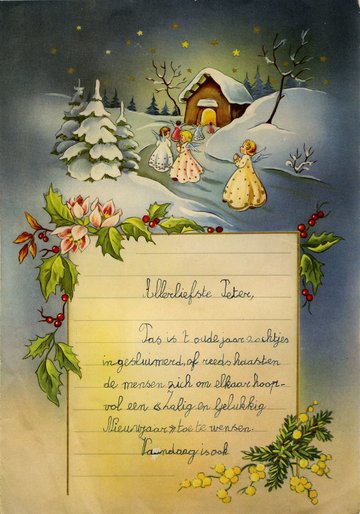 Allerliefste Peter,
Pas is 't oude jaar zachtjes
ingesluimerd, of reeds haasten
de mensen zich om elkaar hoop-
vol een «Zalig en Gelukkig
Nieuwjaar» toe te wensen.
Vandaag is ook